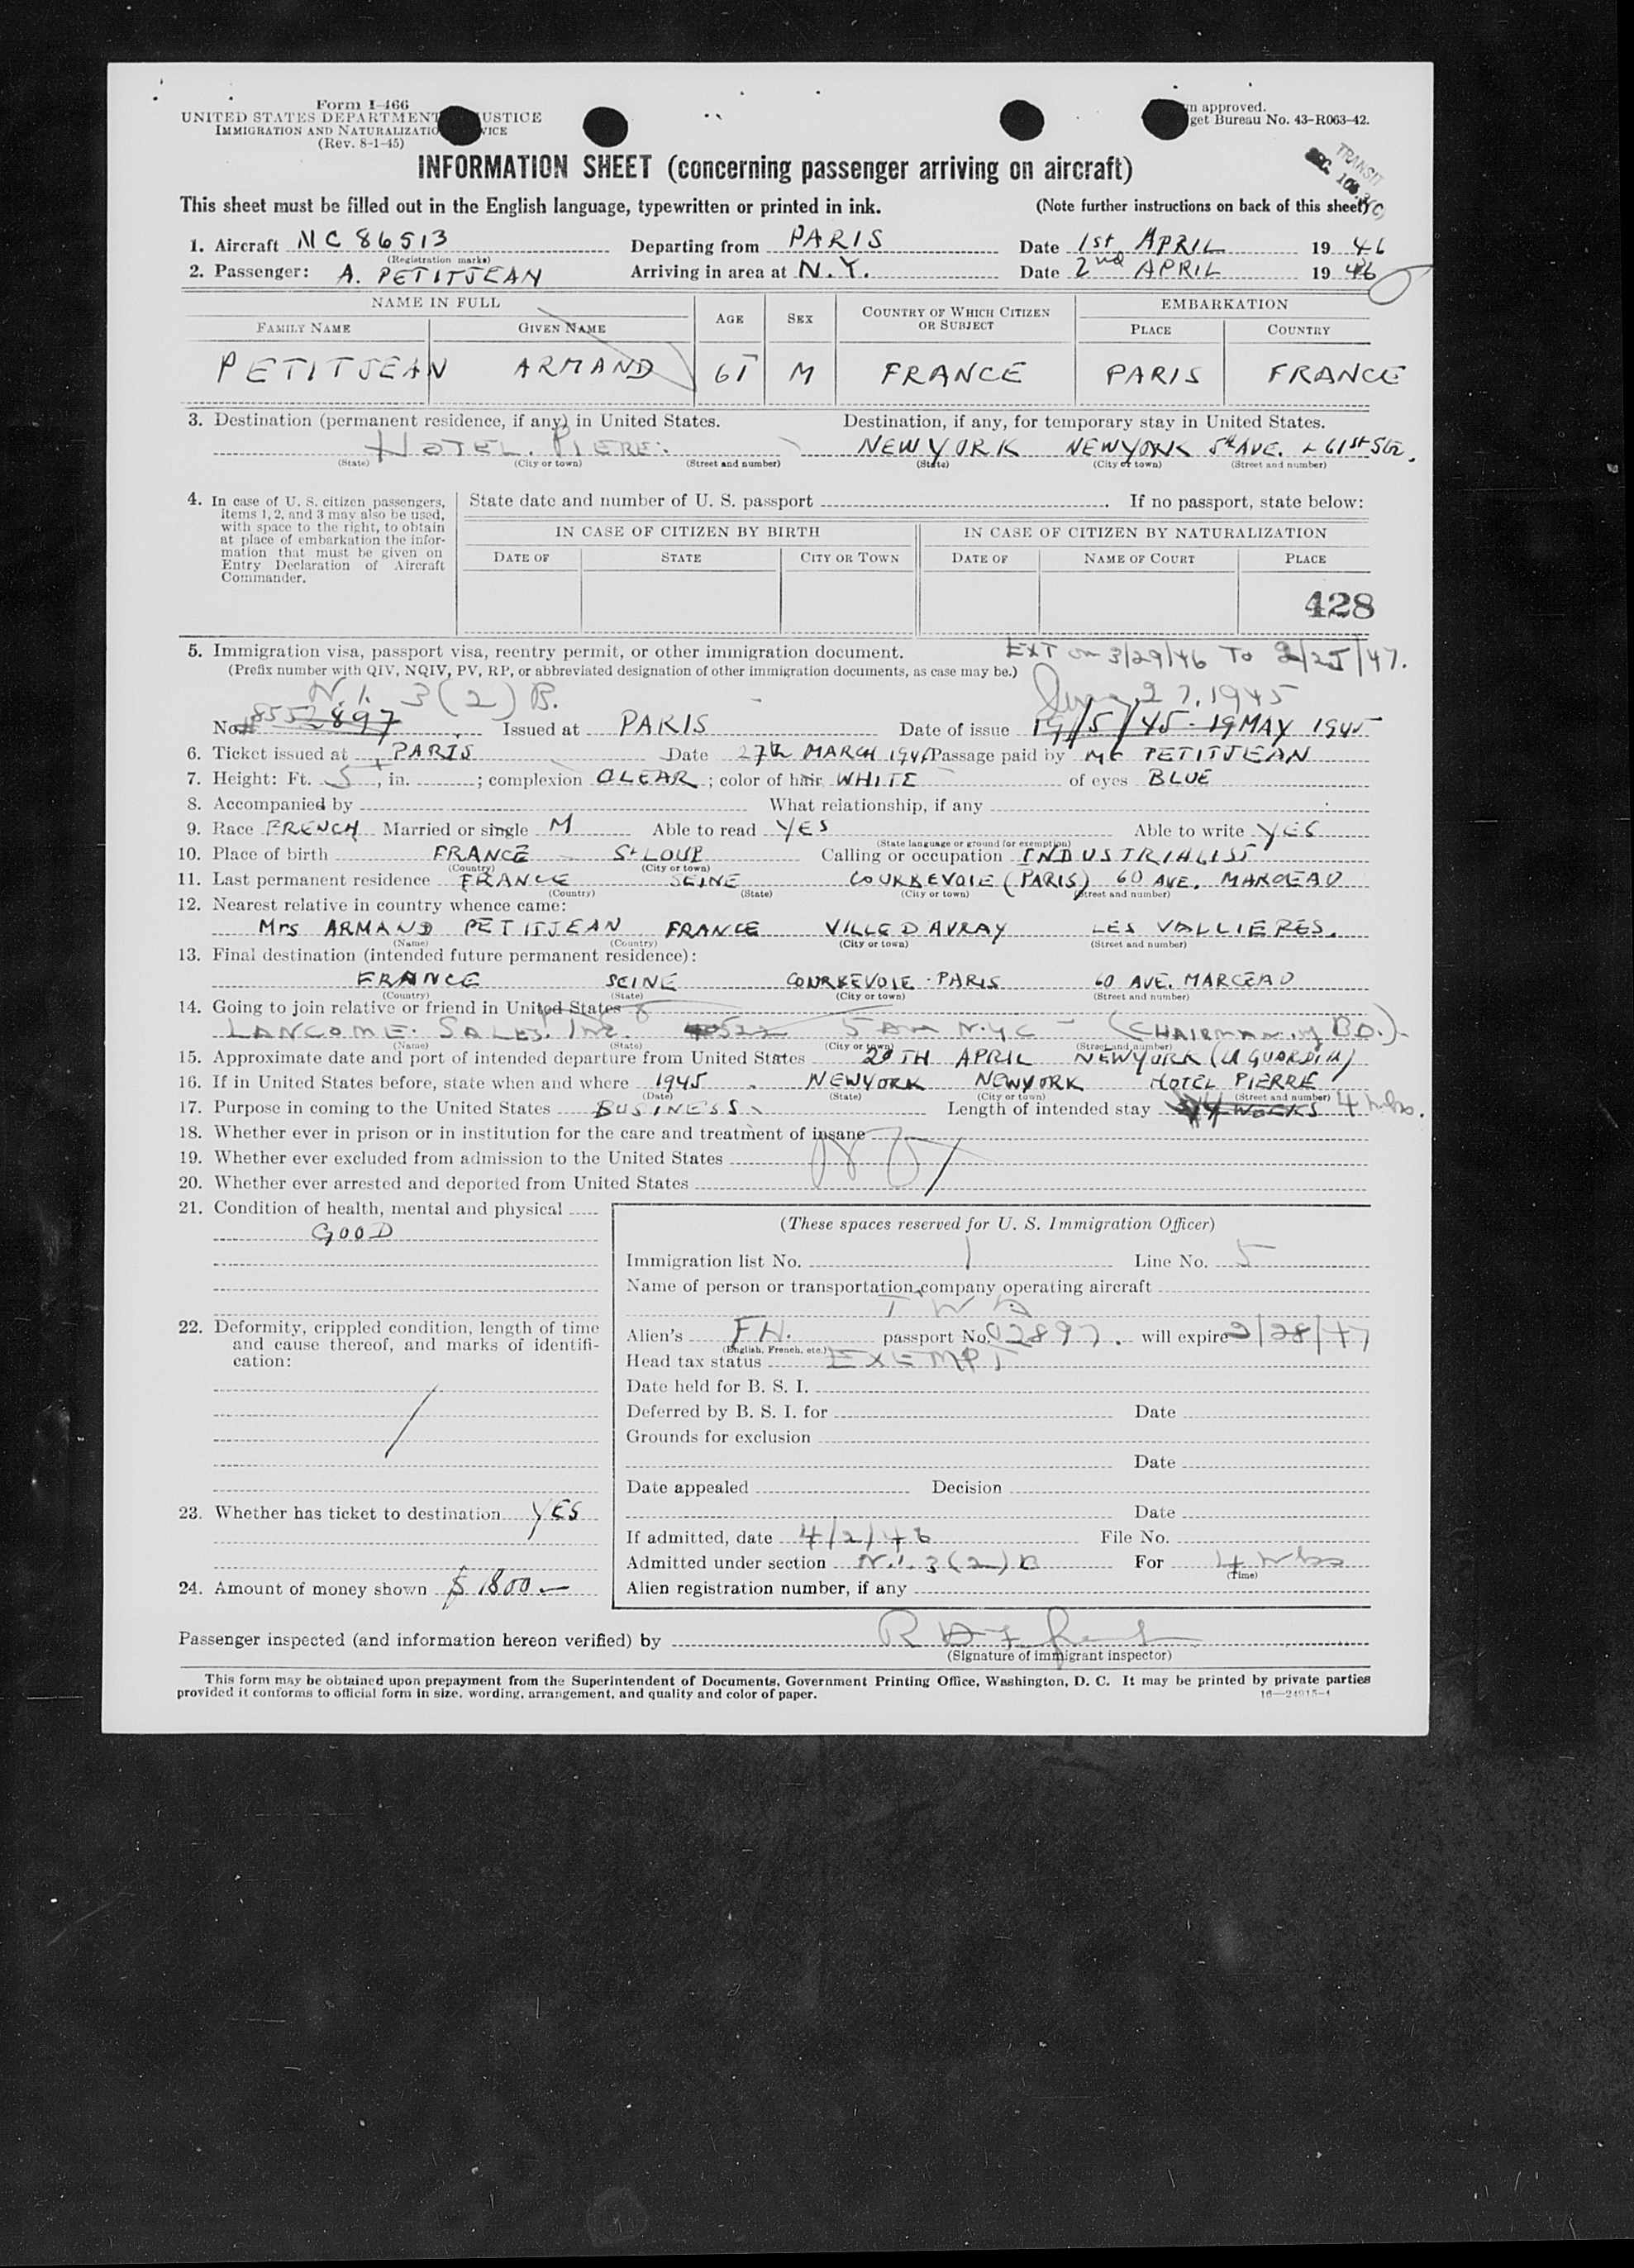 Form I-466
UNITED STATES DEPARTMENT USTICE
IMMIGRATION AND NATURALIZATIO VICE
(Rev. 8-1-45)
n approved.
get Bureau No. 43-R063-42.
TRANSIT
INFORMATION SHEET (concerning passenger arriving on aircraft)
This sheet must be filled out in the English language, typewritten or printed in ink. (Note further instructions on back of this sheet)
1. Aircraft NC 86513 Departing from PARIS Date 1st APRIL 19 46
(Registration marks)
2. Passenger: A. PETITJEAN Arriving in area at N.Y. Date 2nd APRIL 19 46
NAME IN FULL AGE SEX COUNTRY OF WHICH CITIZEN OR SUBJECT EMBARKATION
FAMILY NAME GIVEN NAME PLACE COUNTRY
PETITJEAN ARMAND 61 M FRANCE PARIS FRANCE
3. Destination (permanent residence, if any) in United States. Destination, if any, for temporary stay in United States.
HOTEL. PIERE. NEW YORK NEWYORK 5th AVE. + 61st Str.
(State) (City or town) (Street and number) (State) (City or town) (Street and number)
4. In case of U. S. citizen passengers, items 1, 2, and 3 may also be used, with space to the right, to obtain at place of embarkation the information that must be given on Entry Declaration of Aircraft Commander.
State date and number of U. S. passport . If no passport, state below:
IN CASE OF CITIZEN BY BIRTH IN CASE OF CITIZEN BY NATURALIZATION
DATE OF STATE CITY OR TOWN DATE OF NAME OF COURT PLACE
428
5. Immigration visa, passport visa, reentry permit, or other immigration document. EXT on 3/29/46 To 2/25/47.
(Prefix number with QIV, NQIV, PV, RP, or abbreviated designation of other immigration documents, as case may be.)
N.I. 3(2) B. 27, 1945
No. 897 Issued at PARIS Date of issue 19/5/45 - 19 MAY 1945
6. Ticket issued at PARIS Date 27th MARCH 1946 Passage paid by Mr PETITJEAN
7. Height: Ft. 5, in. ; complexion CLEAR ; color of hair WHITE of eyes BLUE
8. Accompanied by What relationship, if any
9. Race FRENCH Married or single M Able to read YES Able to write YES
(State language or ground for exemption)
10. Place of birth FRANCE St LOUP Calling or occupation INDUSTRIALIST
(Country) (City or town)
11. Last permanent residence FRANCE SEINE COURBEVOIE (PARIS) 60 AVE. MARCEAU
(Country) (State) (City or town) (Street and number)
12. Nearest relative in country whence came:
Mrs ARMAND PETITJEAN FRANCE VILLE D AVRAY LES VALLIERES.
(Name) (Country) (City or town) (Street and number)
13. Final destination (intended future permanent residence):
FRANCE SEINE COURBEVOIE - PARIS 60 AVE. MARCEAU
(Country) (State) (City or town) (Street and number)
14. Going to join relative or friend in United States
LANCOME. SALES. INC. 5 Ave N.Y.C - (CHAIRMAN of BD.)
(Name) (State) (City or town) (Street and number)
15. Approximate date and port of intended departure from United States 28TH APRIL NEWYORK (LA GUARDIA)
16. If in United States before, state when and where 1945 NEWYORK NEWYORK HOTEL PIERRE
(Date) (State) (City or town) (Street and number)
17. Purpose in coming to the United States BUSINESS Length of intended stay 4 WEEKS 4 wks.
18. Whether ever in prison or in institution for the care and treatment of insane
19. Whether ever excluded from admission to the United States NO
20. Whether ever arrested and deported from United States
21. Condition of health, mental and physical
GOOD
(These spaces reserved for U. S. Immigration Officer)
Immigration list No. 1 Line No. 5
Name of person or transportation company operating aircraft
TWA
22. Deformity, crippled condition, length of time and cause thereof, and marks of identification:
Alien's FH. passport No. 02897. will expire 2/28/47
(English, French, etc.)
Head tax status EXEMPT
Date held for B. S. I.
Deferred by B. S. I. for Date
Grounds for exclusion
Date
Date appealed Decision
23. Whether has ticket to destination YES
Date
If admitted, date 4/2/46 File No.
Admitted under section N.I. 3(2)B For 4 wks
(Time)
24. Amount of money shown $ 1800 -
Alien registration number, if any
Passenger inspected (and information hereon verified) by
(Signature of immigrant inspector)
This form may be obtained upon prepayment from the Superintendent of Documents, Government Printing Office, Washington, D. C. It may be printed by private parties
provided it conforms to official form in size, wording, arrangement, and quality and color of paper. 16—24915-1